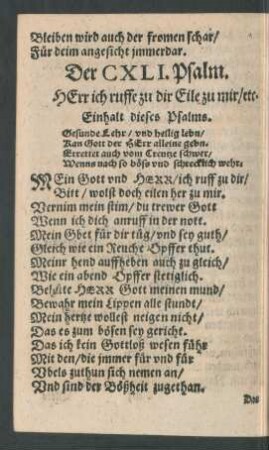 Bleiben wird auch der fromen schar/
Für deim angesicht jmmerdar.
Der CXLI. Psalm.
HErr ich ruffe zu dir Eile zu mir/etc.
Einhalt dieses Psalms.
Gesunde Lehr/ vnd heilig lebn/
Kan Gott der HErr alleine gebn.
Errettet auch vom Creutze schwer/
Wenns nach so böß vnd schrecklich wehr.
MEin Gott vnd HERR/ich ruff zu dir/
Bitt/ wolst doch eilen her zu mir.
Vernim mein stim/ du trewer Gott
Wenn ich dich anruff in der nott.
Mein Gbet für dir tüg/vnd sey guth/
Gleich wie ein Reuche Opffer thut.
Meinr hend auffheben auch zu gleich/
Wie ein abend Opffer stetiglich.
Behüte HERR Gott meinen mund/
Bewahr mein Lippen alle stundt/
Mein hertze wollest neigen nicht/
Das es zum bösen sey gericht.
Das ich kein Gottloß wesen führ
Mit den/die jmmer für vnd für
Vbels zuthun sich nemen an/
Vnd sind der Bößheit zugethan.
Das